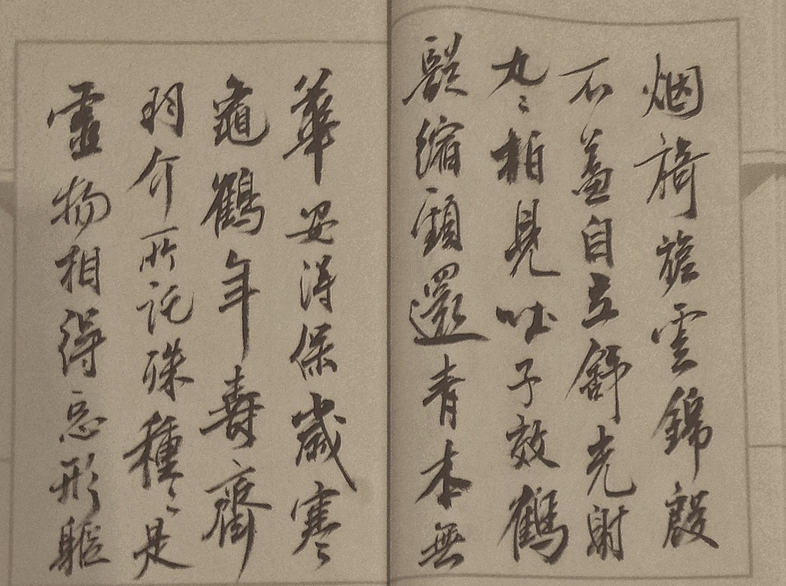 烟旖旎雲錦殷
不羞自立舒光射
丸々柏見吐子效鶴
疑縮頸還青本無
華安得保歲寒
龜鶴年壽齊
羽介所託殊種々是
靈物相得忘形軀